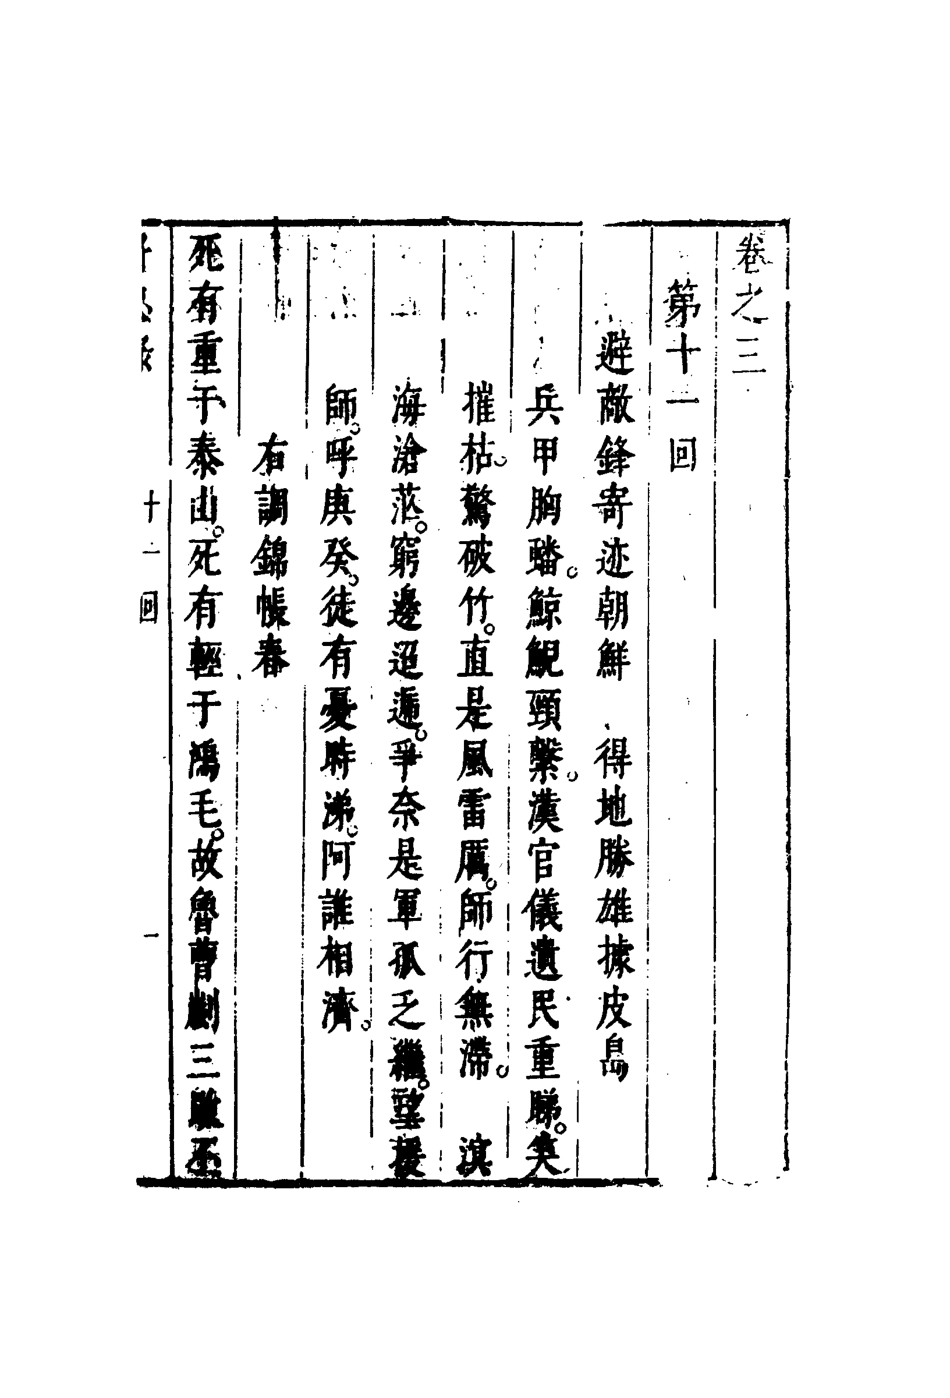 卷之三
第十一回
避敵鋒寄迹朝鮮　得地勝雄據皮島
兵甲胸蟠。鯨鯢頸繫。漢官儀遺民重睇。笑
摧枯。驚破竹。直是風雷厲。師行無滯。　溟
海滄茫。窮邊迢遞。爭奈是軍孤乏繼。望援
師。呼庚癸。徒有憂時涕。阿誰相濟。
右調錦帳春
死有重于泰山。死有輕于鴻毛。故魯曹劌三敗不
十一回　一